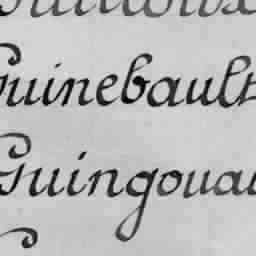 Guinebault
Guingouau